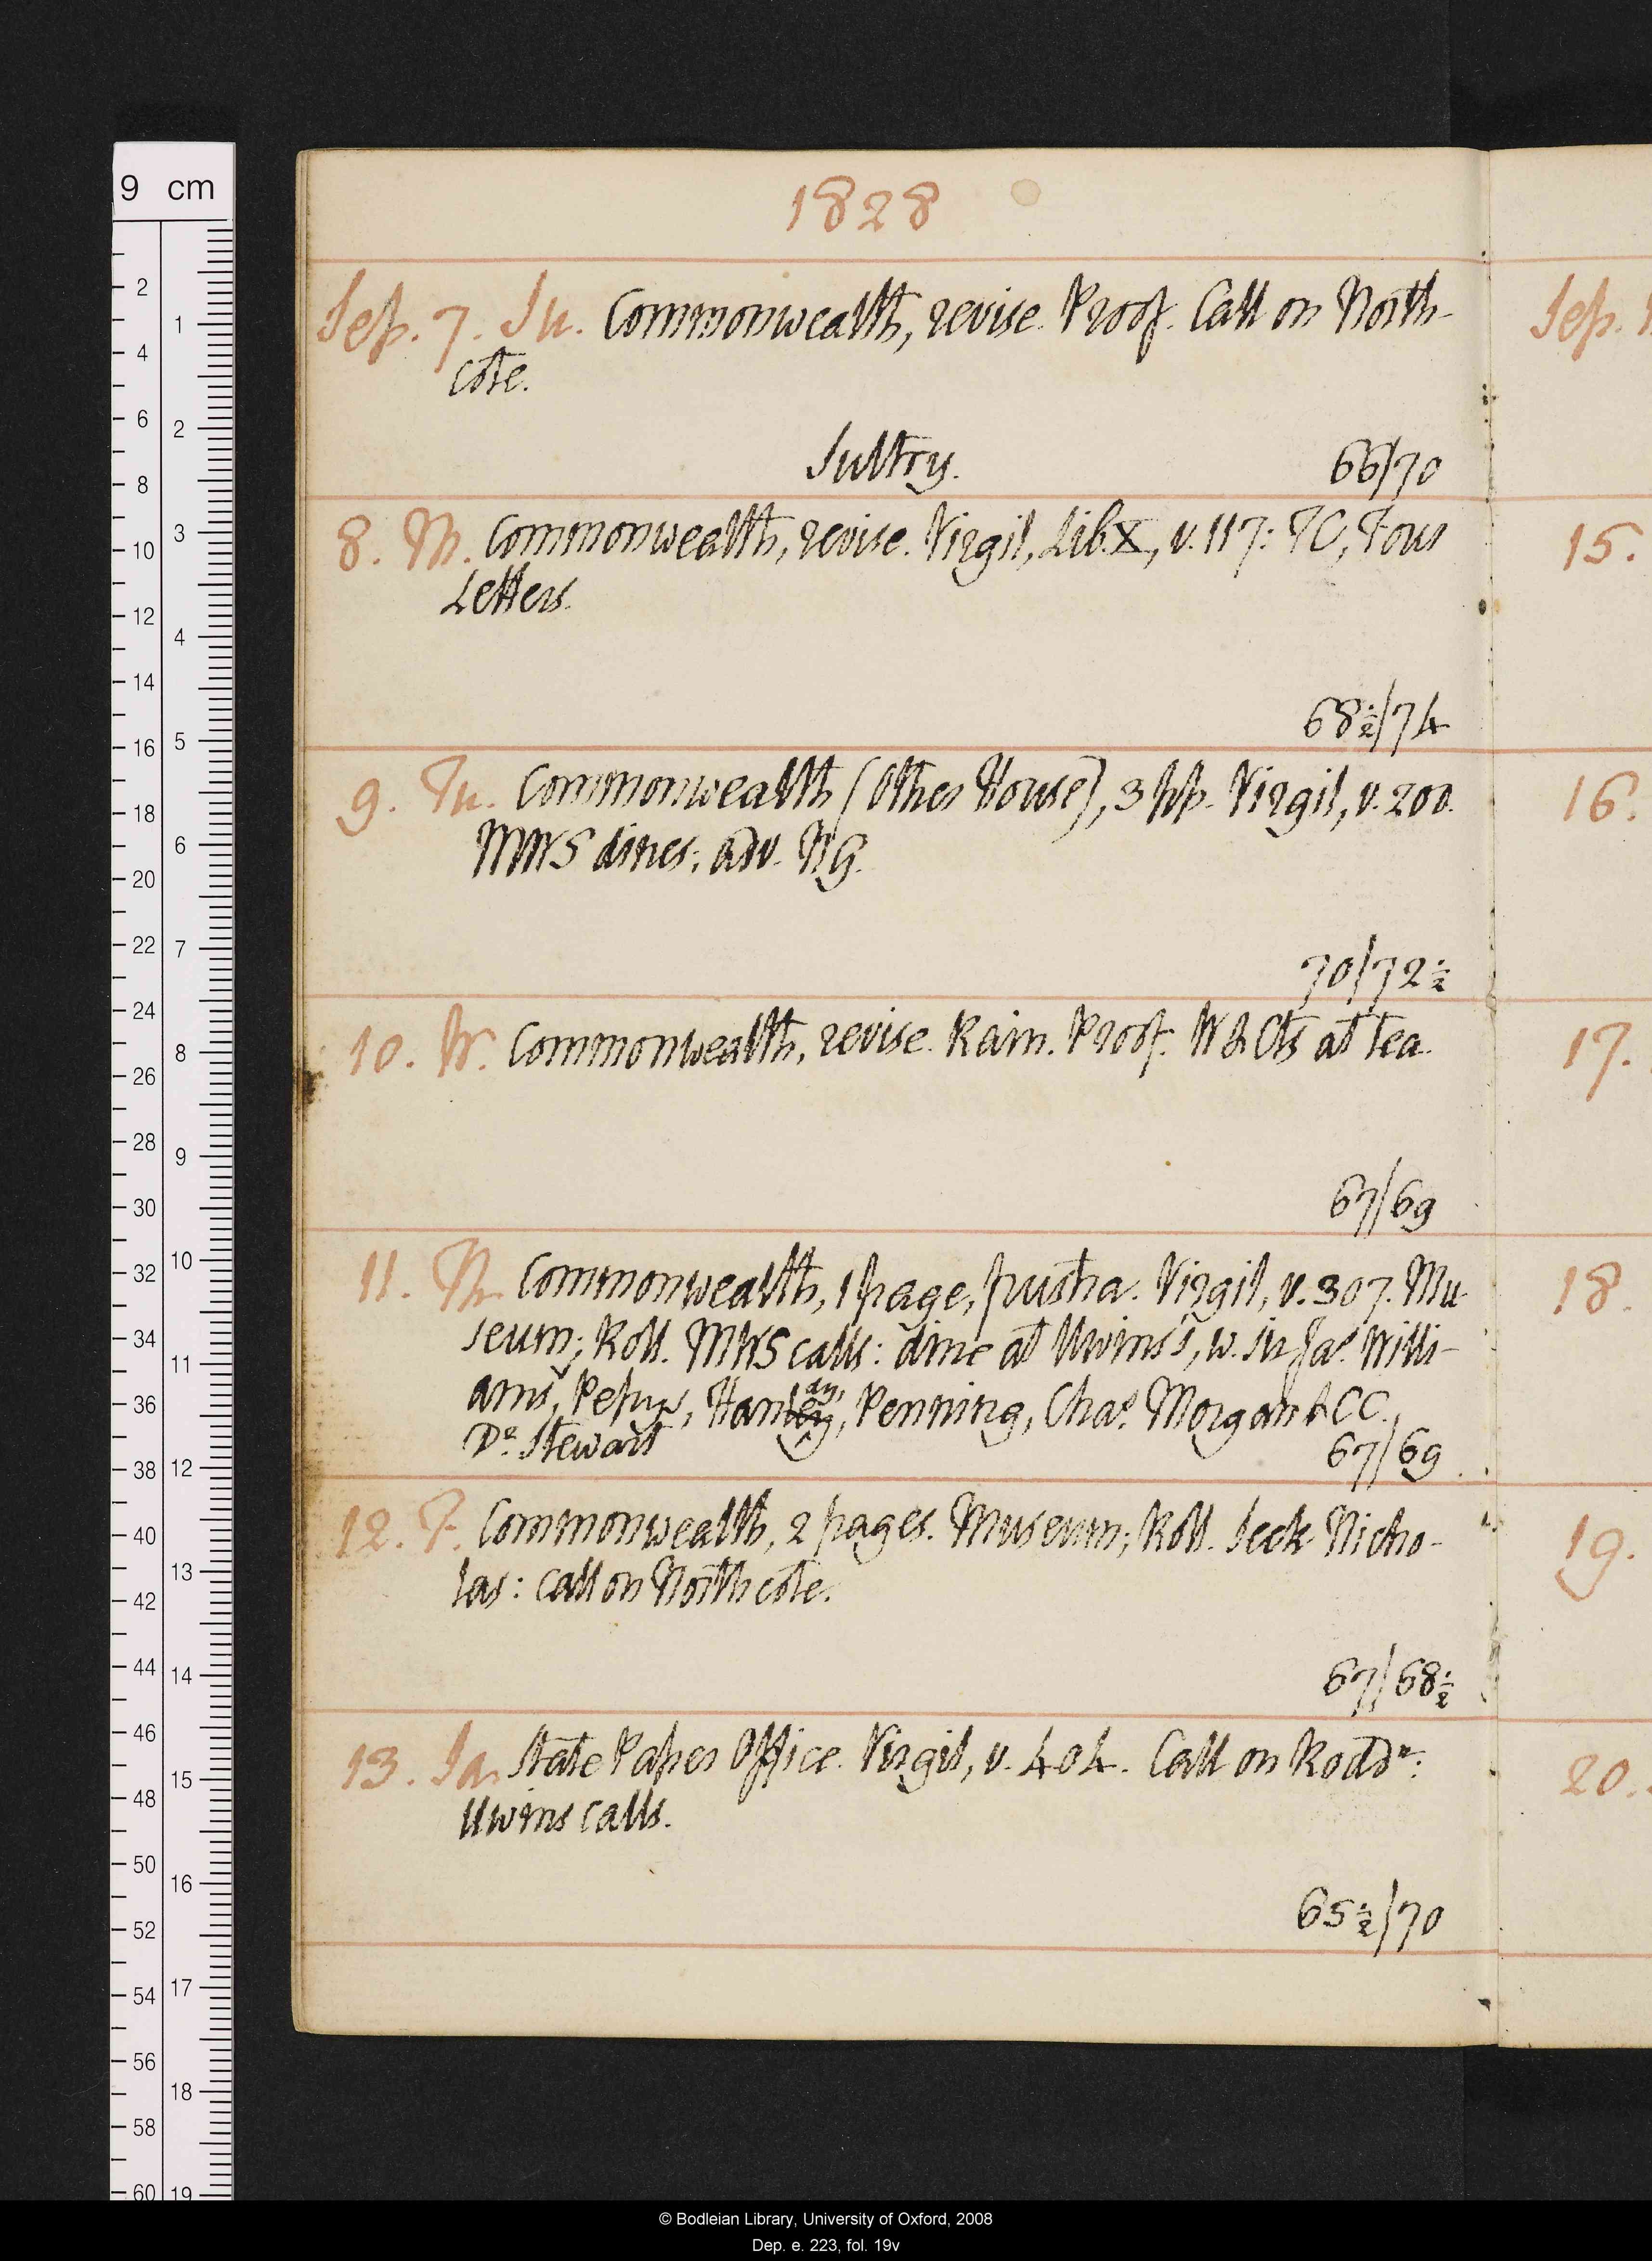 1828
Sep. 7. Su. Commonwealth, revise. Proof. Call on North-
cote.
Sultry. 66/70
8. M. Commonwealth, revise. Virgil, Lib. X, v. 117: TC, Four
Letters.
68½/74
9. Tu. Commonwealth (Other House), 3 pp. Virgil, v. 200.
MWS dines; adv. NG.
70/72½
10. W. Commonwealth, revise. Rain. Proof. W & Cts at tea.
67/69
11. Th. Commonwealth, 1 page, frustra. Virgil, v. 307. Mu-
seum; Roll. MWS calls: dine at Uwins's, w. Sir Jas. Willi-
ams, Pepys, Han, Penning, Chas. Morgan & CC.,
Dr. Stewart 67/69
12. F. Commonwealth, 2 pages. Museum; Roll. Seek Nicho-
las: call on Northcote.
67/68½
13. Sa. State Paper Office. Virgil, v. 404. Call on Rodd:
Uwins calls.
65½/70
Sep. 1
15.
16.
17.
18.
19.
20.
9 cm
2
4
6
8
10
12
14
16
18
20
22
24
26
28
30
32
34
36
38
40
42
44
46
48
50
52
54
56
58
60
1
2
3
4
5
6
7
8
9
10
11
12
13
14
15
16
17
18
19
© Bodleian Library, University of Oxford, 2008
Dep. e. 223, fol. 19v